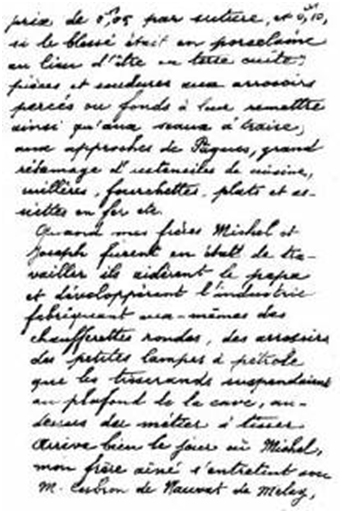 prix de 0,05 par suture, et 0,10,
si le blessé était en porcelaine
au lieu d'être en terre cuite;
pièces et soudures aux arrosoirs
percés ou fonds à leur remettre
ainsi qu'aux seaux à traire,
aux approches de Pâques, grand
rétamage d'ustensiles de cuisine,
cuillères, fourchettes, plats et as-
siettes en fer etc.
Quand mes frères Michel et
Joseph furent en état de tra-
vailler ils aidèrent le papa
et développèrent l'industrie
fabriquant eux-mêmes des
chaufferettes rondes, des arrosoirs
des petites lampes à pétrole
que les tisserands suspendaient
au plafond de la cave, au-
dessus du métier à tisser
Arriva bien le jour où Michel,
mon frère aîné s'entretint avec
M. de Mélay,